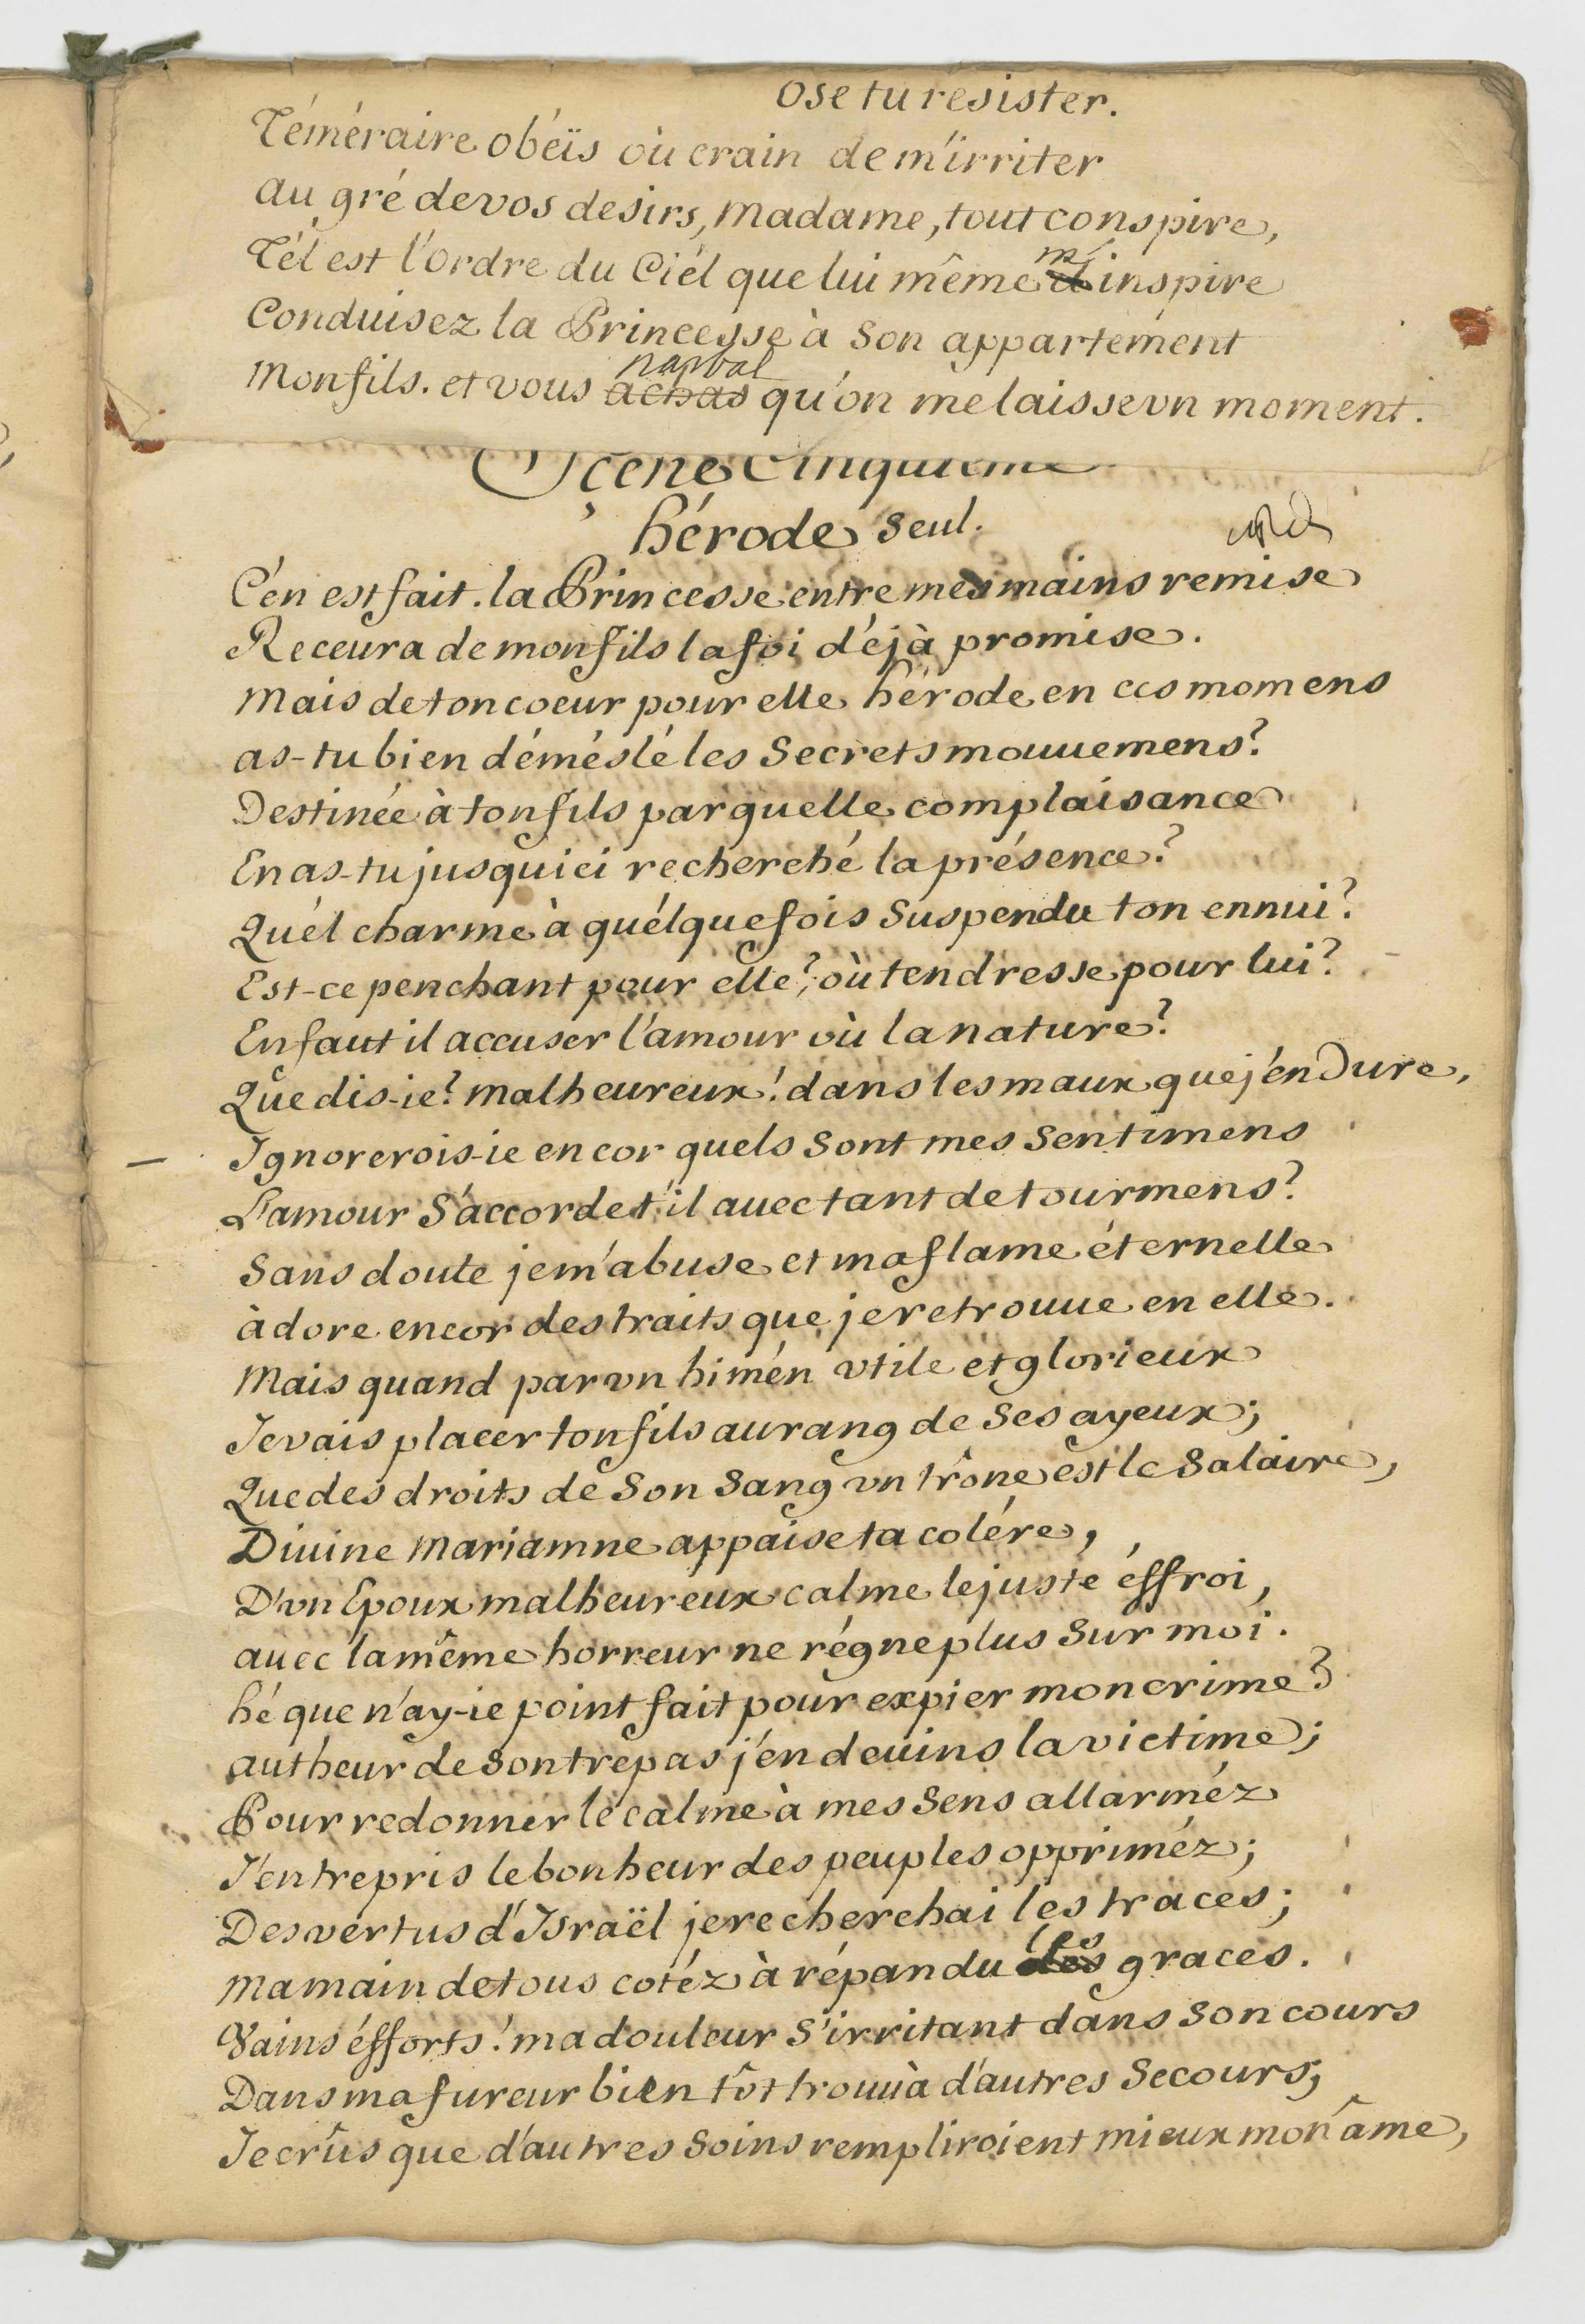 ose tu resister.
Téméraire obéïs où crain de m'irriter
au gré de vos desirs, Madame, tout conspire,
Tél est l'ordre du Ciél que lui même m'inspire
Conduisez la Princesse à Son appartement
Mon fils. et vous achas nabal qu'on me laisse vn moment.
Sçene Cinquieme
hérode Seul.
C'én est fait. la Princesse entre mes mains remise
Receura de mon fils la foi déjà promise.
Mais de ton coeur pour elle hérode en ces momens
as-tu bien déméslé les Secrets mouuemens?
Destinée à ton fils par quelle complaisance
En as-tu jusqu'ici recherché la présence?
Quél charme à quélquefois Suspendu ton ennui?
Est-ce penchant pour elle?, où tendresse pour lui?
En faut il accuser l'amour où la nature?
Que dis-ie? malheureux! dans les maux que j'éndure,
Ignorerois-ie encor quels Sont mes Sentimens
L'amour S'accorde t'il auec tant de tourmens?
Sans doute je m'abuse et ma flame éternelle
àdore encor des traits que je retrouue en elle.
Mais quand par vn himén vtile et glorieux
Je vais placer ton fils au rang de Ses ayeux;
Que des droits de Son Sang vn trône est le Salaire,
Diuine Mariamne appaise ta colére,
D'vn Epoux malheureux calme le juste éffroi,
auec la même horreur ne régne plus Sur moi.
hé que n'ay-ie point fait pour expier mon crime?
autheur de Son trepas j'én deuins la victime;
Pour redonner le calme à mes Sens allarméz
J'entrepris le bonheur des peuples oppriméz;
Des vertus d'Israël je recherchai les traces;
Ma main de tous cotéz à répandu les graces.
Vains éfforts! ma douleur S'irritant dans Son cours
Dans ma fureur bien tôt trouuà d'autres Secours;
Je crûs que d'autres Soins rempliroient mieux mon âme,